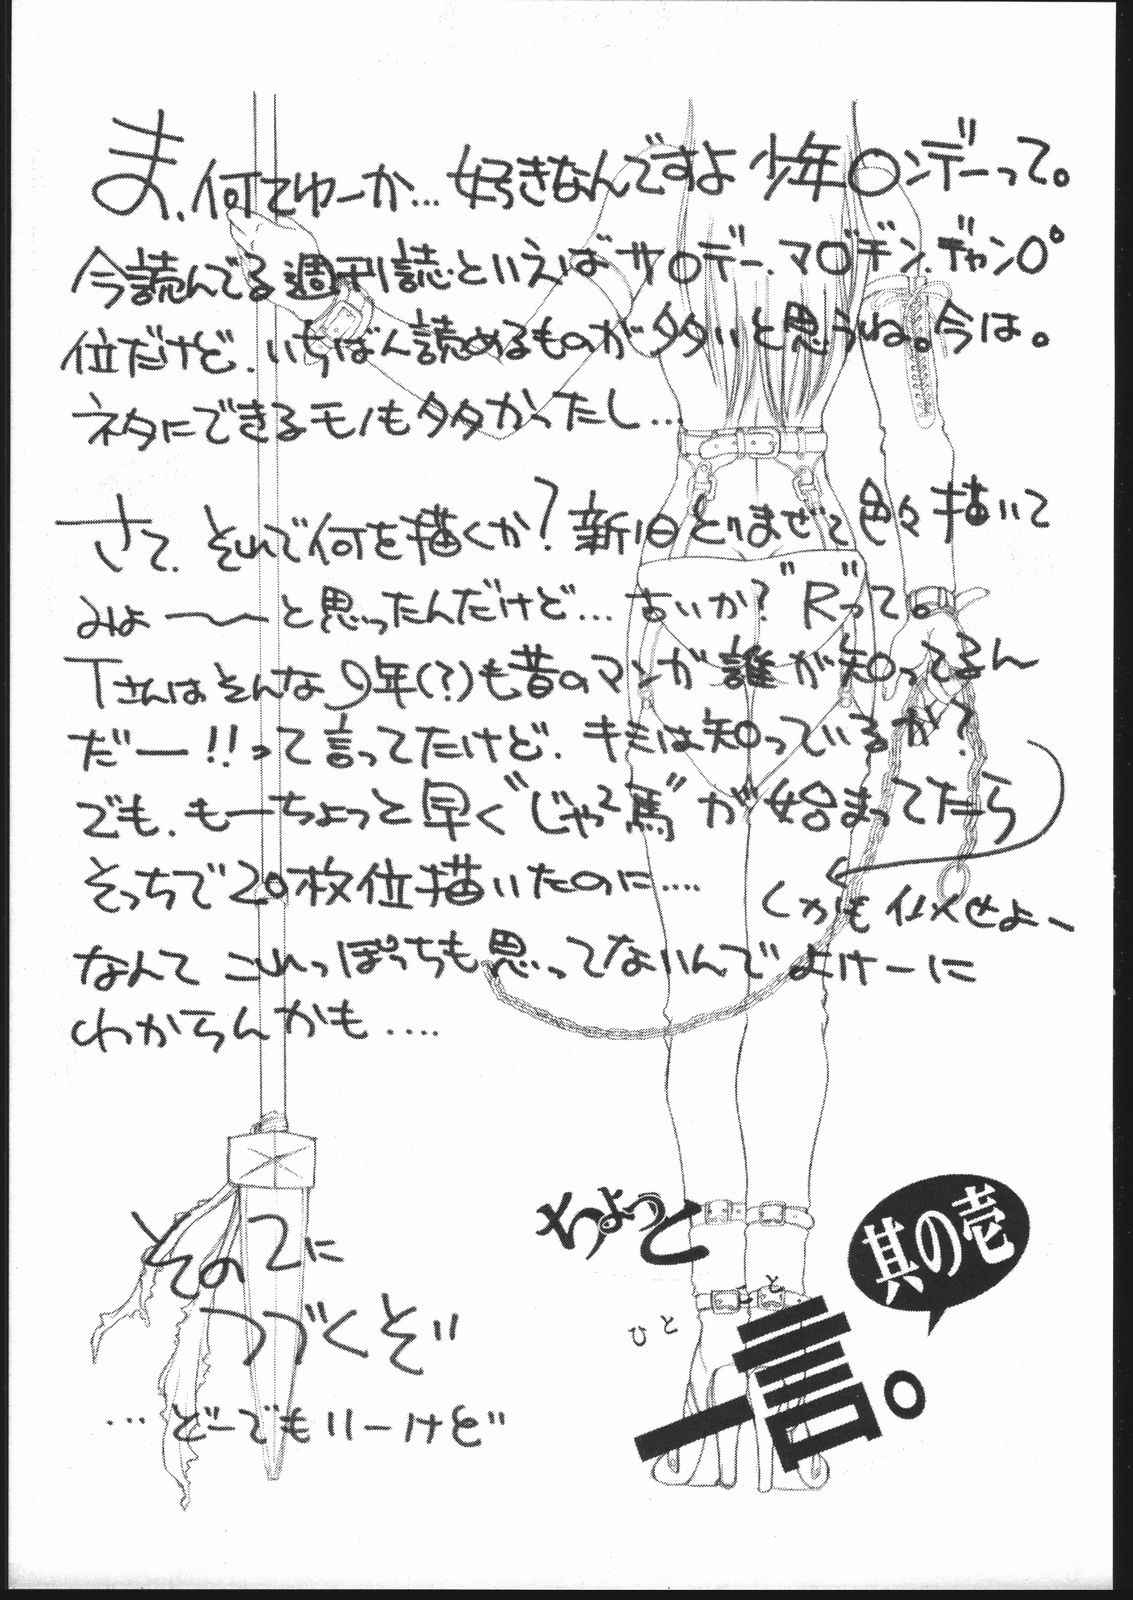 ま、何てゆーか…好きなんですよ少年○ンデーって。
今読んでる週刊誌といえばサ○デー、マ○ヂン、ヂャン○゜
位だけど、いちばん読めるものが多いと思うね。今は。
ネタにできるモノも多かったし…
さて、それで何を描くか？新旧とりまぜて色々描いて
みよ〜〜と思ったんだけど…古いか？"R"って。
Tさんはそんな9年(？)も昔のマンガ誰が知ってるん
だー!!って言ってたけど、キミは知っているか？
でも、もーちょっと早く"じゃ馬"が始まってたら
そっちで20枚位描いたのに….
しかも仏×せよ〜
なんてこれっぽっちも思ってないんでよけーに
わからんかも….
その2に
つづくぞ"
…どーでもいーけど"
ちょっと
ひと こと
一言。
其の壱